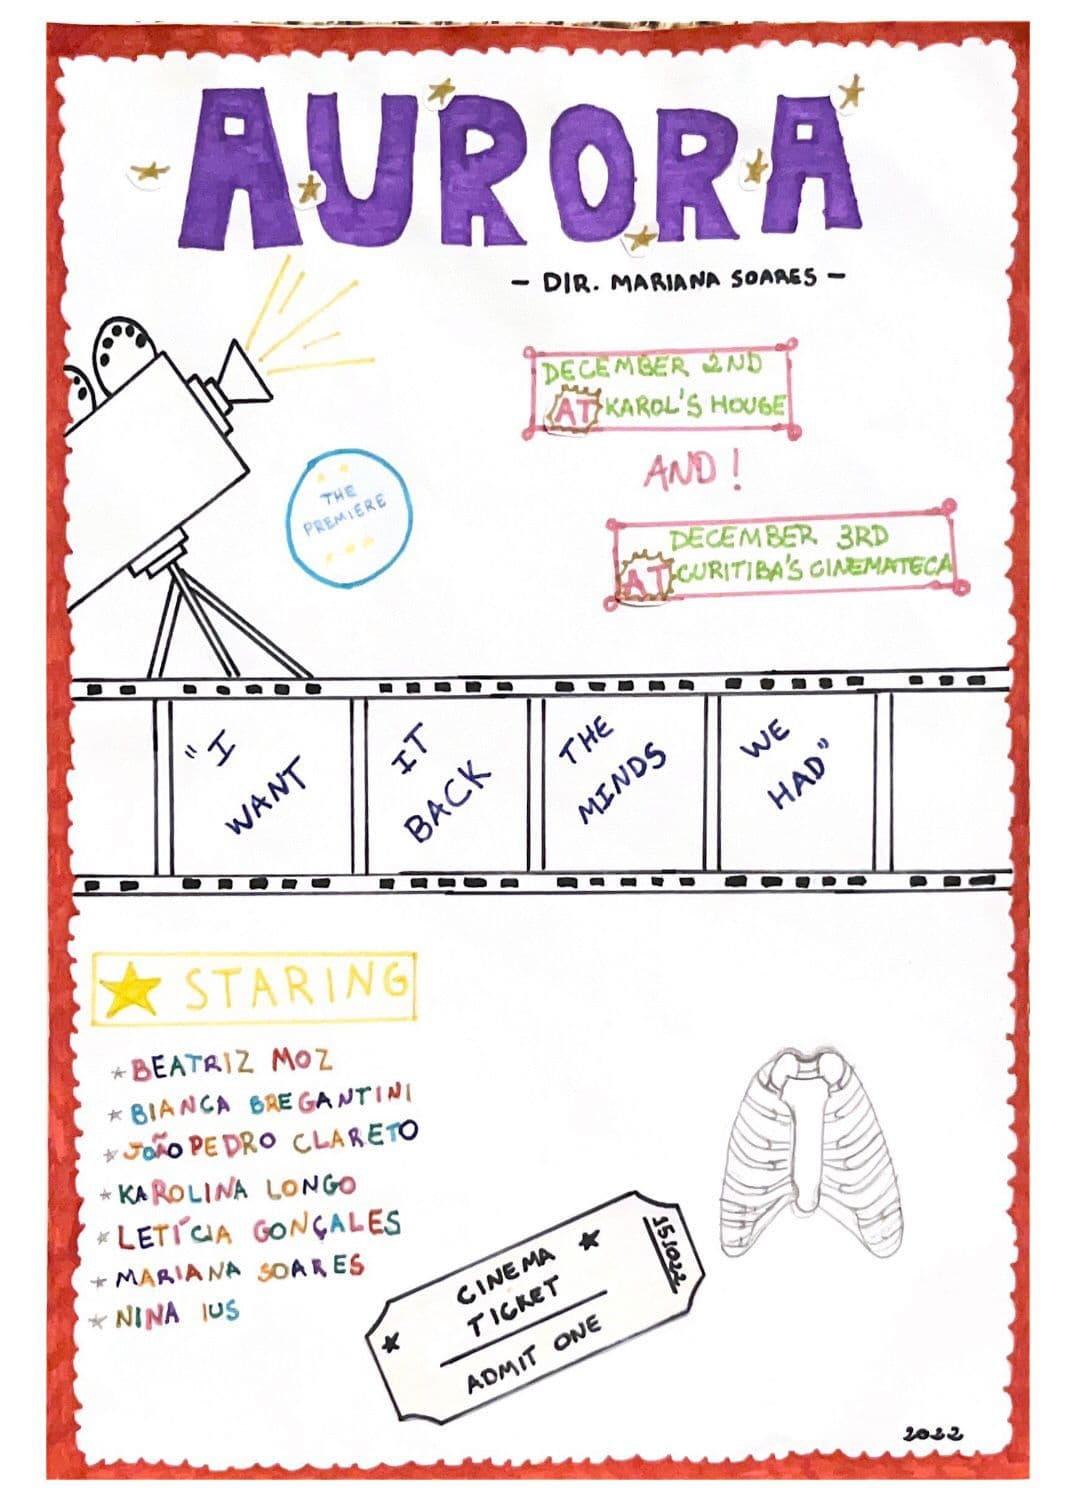 AURORA
- DIR. MARIANA SOARES -
DECEMBER 2ND
AT KAROL'S HOUSE
AND!
THE
PREMIERE
DECEMBER 3RD
AT CURITIBA'S CINEMATECA
"I
WANT
IT
BACK
THE
MINDS
WE
HAD"
STARING
BEATRIZ MOZ
BIANCA BREGANTINI
JOÃO PEDRO CLARETO
KAROLINA LONGO
LETÍCIA GONÇALES
MARIANA SOARES
NINA IUS
CINEMA
TICKET
ADMIT ONE
151022
2022